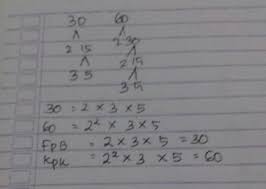 30 60
2 15 2 30
3 5 2 15
3 5
30 = 2 × 3 × 5
60 = 2² × 3 × 5
FPB = 2 × 3 × 5 = 30
KPK = 2² × 3 × 5 = 60